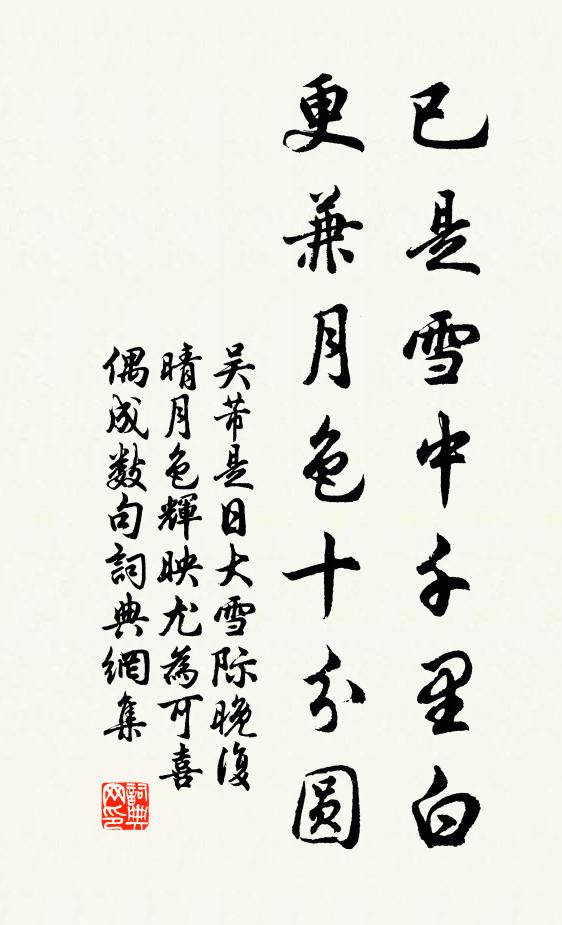 已是雪中千里白
更兼月色十分圆
吴芾是日大雪际晚復
晴月色輝映尤為可喜
偶成数句詞典網集
詞典
网印